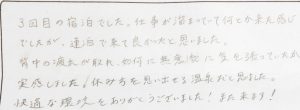 3回目の宿泊でした。仕事が溜まっていて何とか来た感じ
でしたが、連泊で来て良かったと思いました。
背中の疲れが取れ、如何に無意識に気を張っていたか
実感しました！休み方を思い出せる温泉だと思いました。
快適な環境をありがとうございました！また来ます！